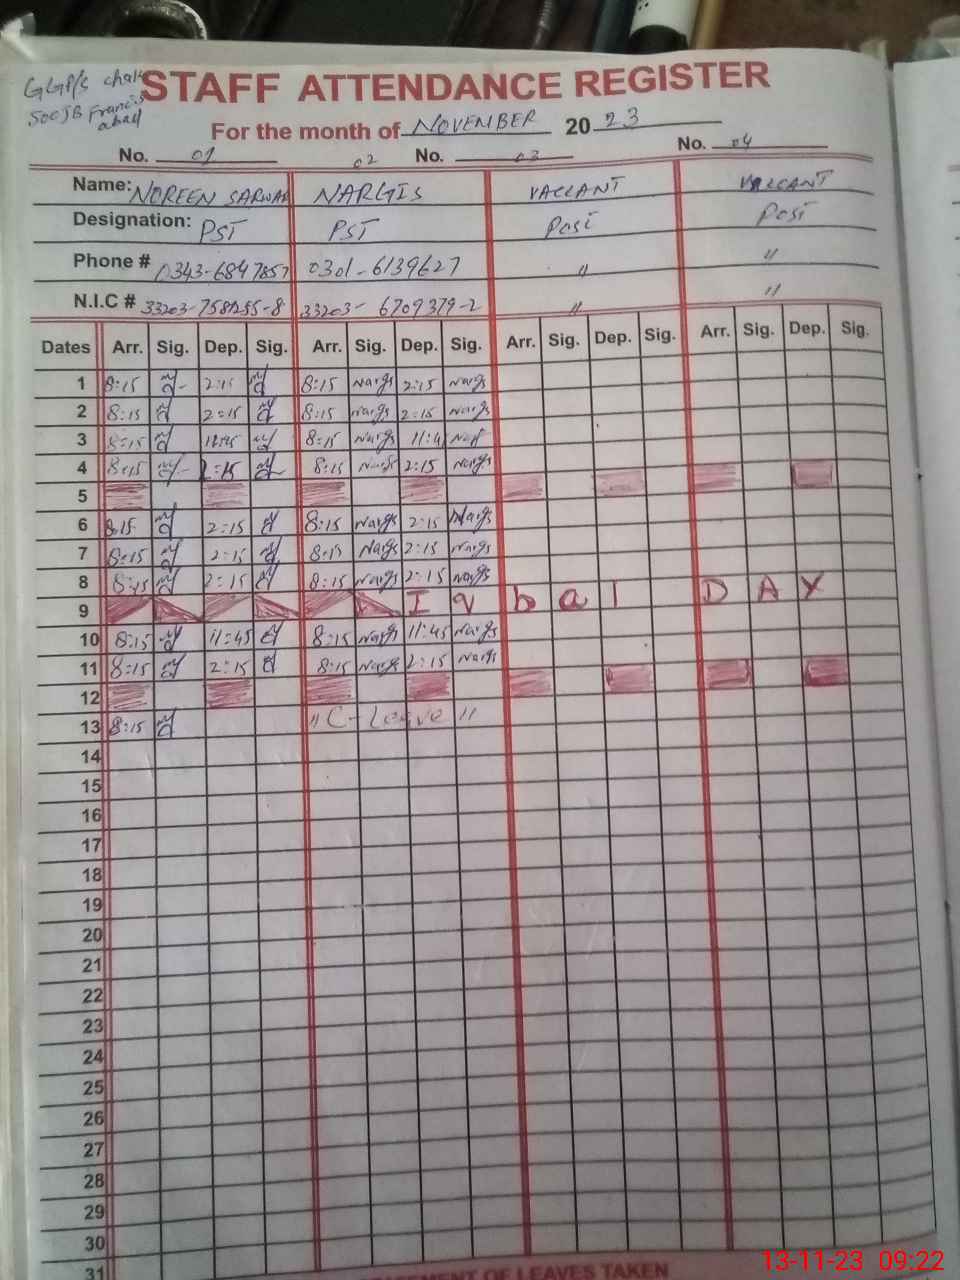 GGP/S chak
STAFF ATTENDANCE REGISTER
500JB Francis
abad
For the month of NOVEMBER 2023
No. 01 02 No. 03 No. 04
Name: NOREEN SARWAR NARGIS VACCANT VACCANT
Designation: PST PST Post Post
Phone # 0343-6847857 0301-6139627 " "
N.I.C # 33203- 33203- 6709379-2 " "
Dates Arr. Sig. Dep. Sig. Arr. Sig. Dep. Sig. Arr. Sig. Dep. Sig. Arr. Sig. Dep. Sig.
1 8:15 2:15 8:15 Nargs 2:15 Nargs
2 8:15 2:15 8:15 Nargs 2:15 Nargs
3 8:15 11:45 8:15 Nargs 11:4
4 8:15 2:15 8:15 Nargs 2:15 Nargs
5
6 8:15 2:15 8:15 Nargs 2:15 Nargs
7 8:15 2:15 8:15 Nargs 2:15 Nargs
8 8:15 2:15 8:15 Nargs 2:15 Nargs
9 Iqbal DAY
10 8:15 11:45 8:15 Nargs 11:45 Nargs
11 8:15 2:15 8:15 Nargs 2:15 Nargs
12
13 8:15 " C- Leave "
14
15
16
17
18
19
20
21
22
23
24
25
26
27
28
29
30
31
OF LEAVES TAKEN
13-11-23 09:22